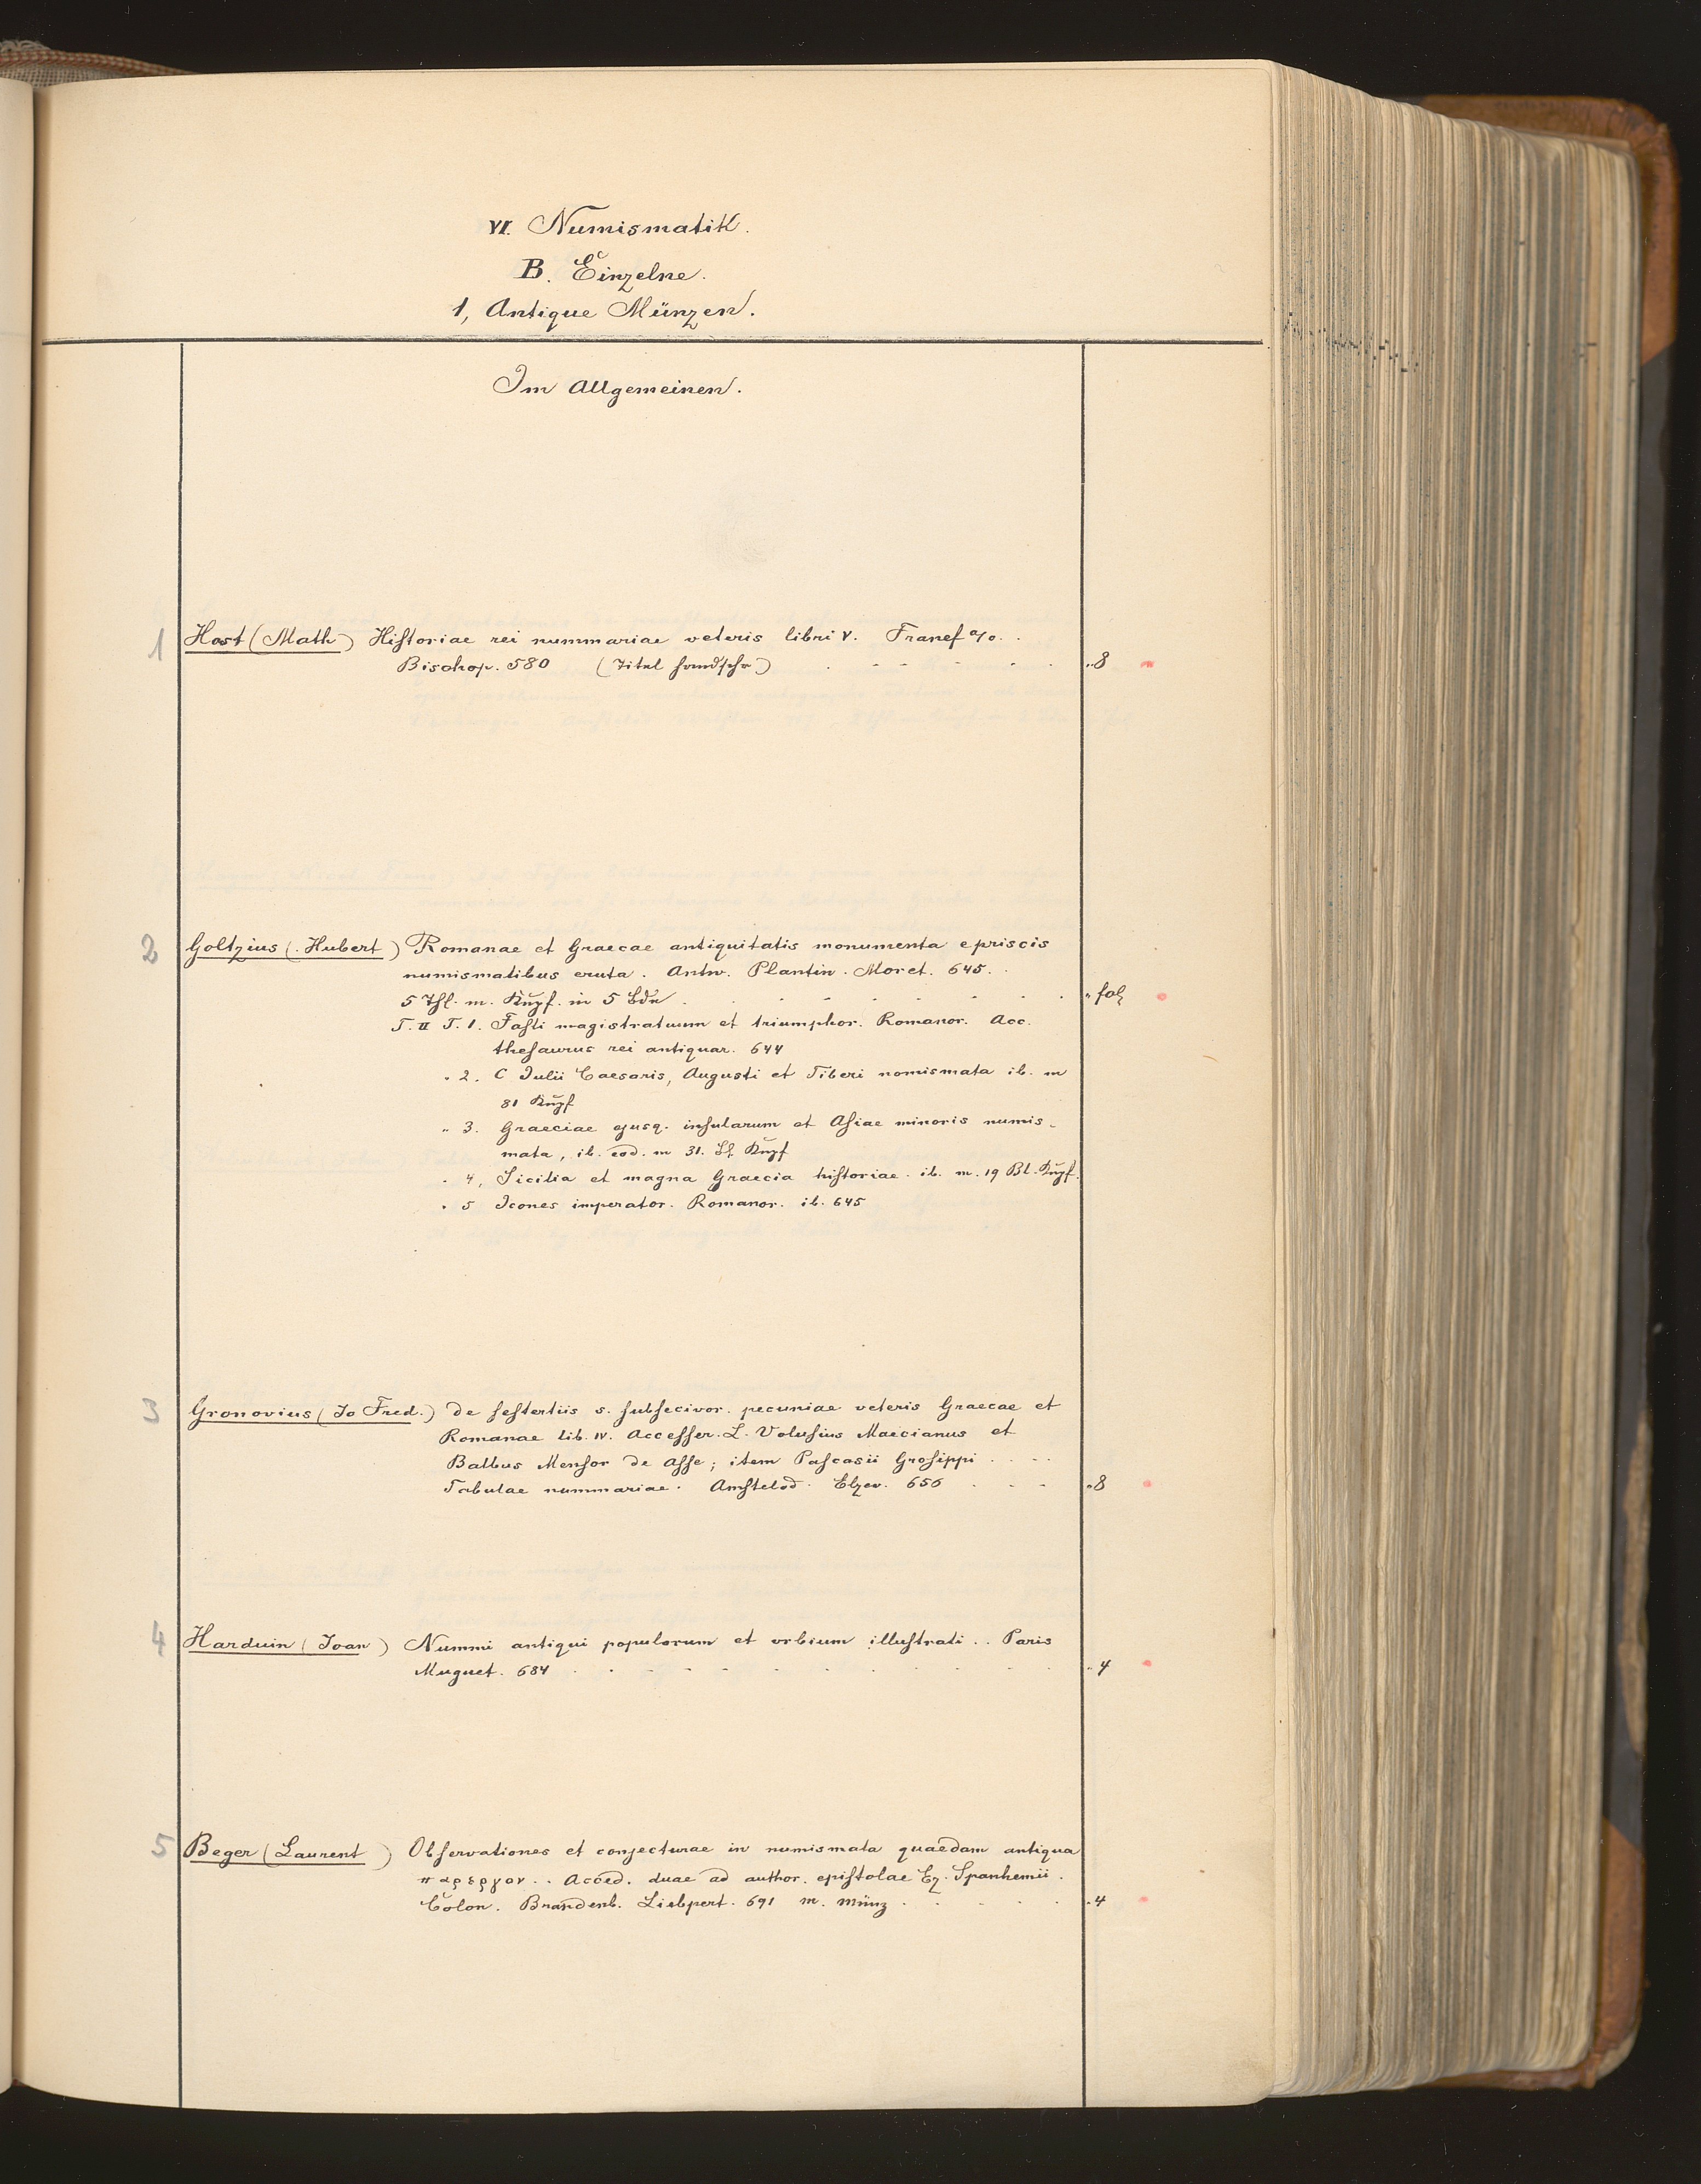 VI. Numismatik.
B. Einzelne.
1, Antique Münzen.
Im Allgemeinen.
1 Host (Math) Hiſtoriae rei nummariae veteris libri V. Francf a/o. .
Bischop. 580 (Titel handschr) . . . . . . "8
2 Goltzius (Hubert) Romanae et Graecae antiquitatis monumenta e priscis
numismatibus eruta. Antw. Plantin. Moret. 645. .
5 Thl. m. Kupf. in 5 Bdn . . . . . . . . . " fol
T. II T. 1. Faſti magistratuum et triumphor. Romanor. Acc.
theſaurus rei antiquar. 644
" 2. C Julii Caesaris, Augusti et Tiberi nomismata ib. m
81 Kupf
" 3. Graeciae ejusq. inſularum et Aſiae minoris numis-
mata, ib. eod. m 31. Bl Kupf
" 4, Sicilia et magna Graecia hiſtoriae. ib. m. 19 Bl. Kupf.
" 5 Icones imperator. Romanor. ib. 645
3 Gronovius (Jo Fred.) de ſeſtertiis s. ſubſecivor. pecuniae veteris Graecae et
Romanae lib. IV. Acceſſer. L. Voluſius Maecianus et
Balbus Menſor de Aſſe; item Paſcasii Groſippi . . . .
Tabulae nummariae. Amſtelod. Elzev. 656 . . . "8
4 Harduin (Joan) Nummi antiqui populorum et urbium illuſtrati . . Paris
Muguet. 684 . . . . . . . . . . . " 4
5 Beger (Laurent) Obſervationes et conjecturae in numismata quaedam antiqua
παρεργον . . Acced. duae ad author. epiſtolae Ez. Spanhemii.
Colon. Brandenb. Liebpert. 691 m. Münz . . . . . " 4